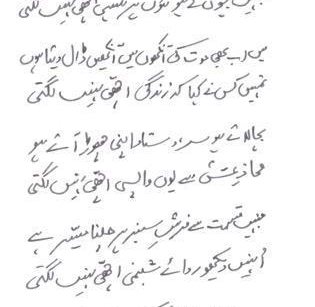 ہیں پھولوں کے جو ہونٹوں پر ہنسی اچھی نہیں لگتی
میں اب بھی موت کی آنکھوں میں آنکھیں ڈال دیتا ہوں
تمہیں کس نے کہا کہ زندگی اچھی نہیں لگتی
بچا لائے ہو سر، دستار اپنی چھوڑ آئے ہو
محاذِ عشق سے یوں واپسی اچھی نہیں لگتی
قسمت سے فرشِ سبز پر چلنا میسر ہے
اُنہیں دیکھو ردائے شبنمی اچھی نہیں لگتی